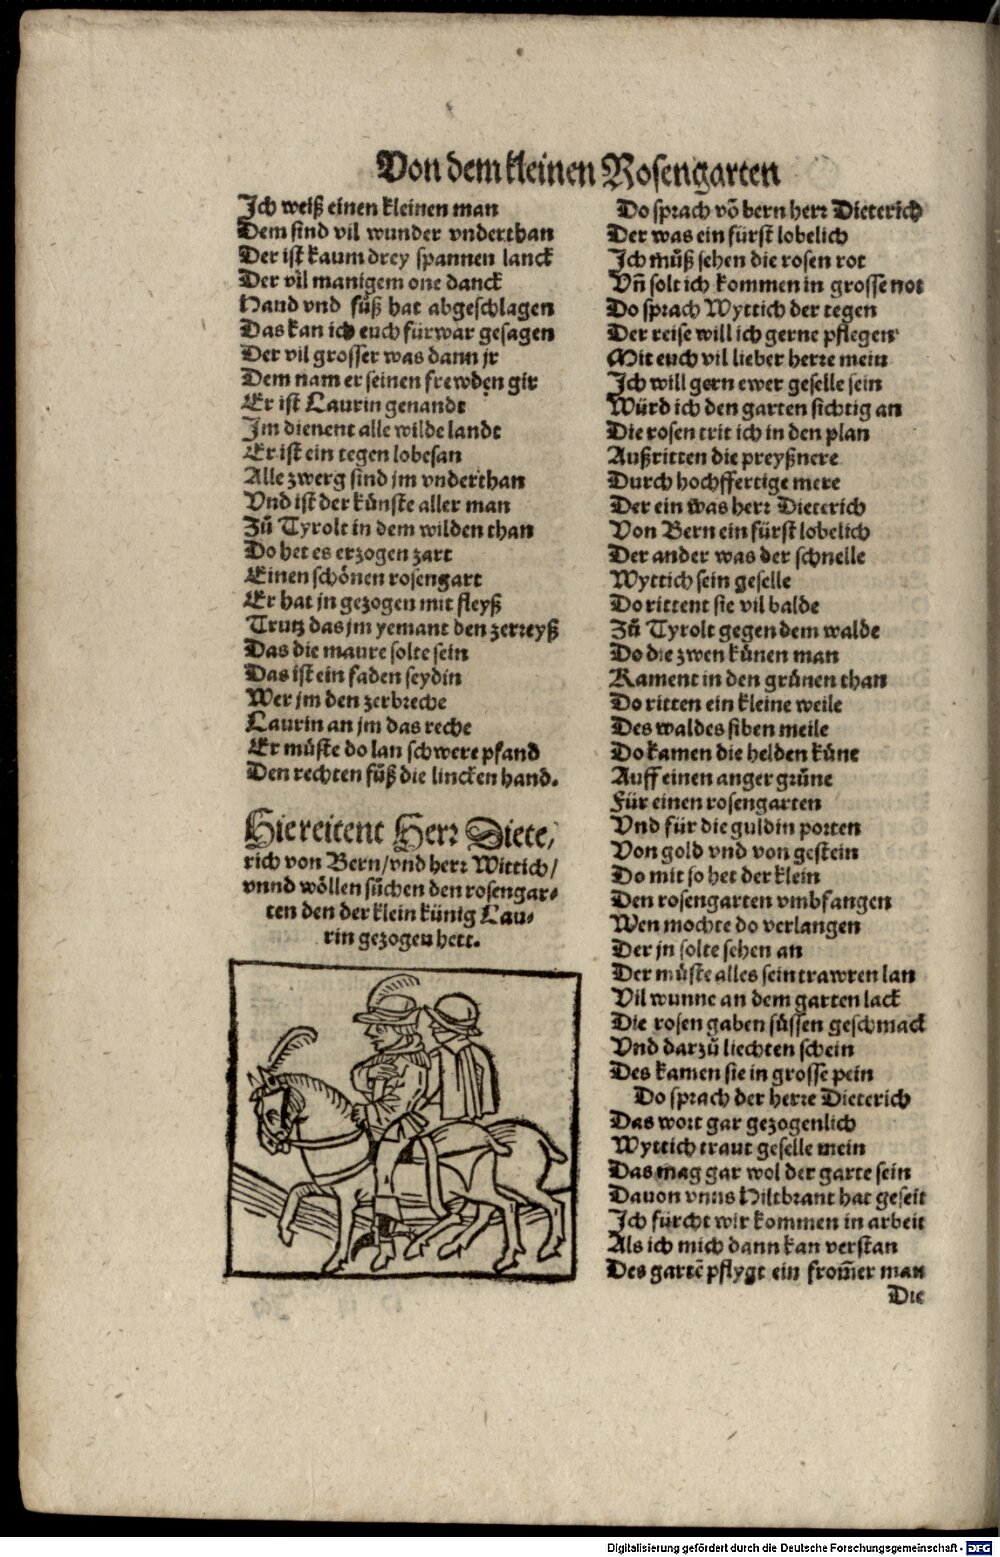 Von dem kleinen Rosengarten
Ich weiß einen kleinen man
Dem sind vil wunder vnderthan
Der ist kaum drey spannen lanck
Der vil manigem one danck
Hand vnd fůß hat abgeschlagen
Das kan ich euch fürwar gesagen
Der vil grosser was dann jr
Dem nam er seinen frewden gir
Er ist Laurin genandt
Im dienent alle wilde landt
Er ist ein tegen lobesan
Alle zwerg sind jm vnderthan
Vnd ist der künste aller man
Zů Tyrolt in dem wilden than
Do het es erzogen zart
Einen schönen rosengart
Er hat jn gezogen mit fleyß
Trutz das jm yemant den zerreyß
Das die maure solte sein
Das ist ein faden seydin
Wer jm den zerbreche
Laurin an jm das reche
Er můste do lan schwere pfand
Den rechten fůß die lincken hand.
Hie reitent Herr Diete/
rich von Bern/vnd herr Wittich/
vnnd wöllen sůchen den rosengar⸗
ten den der klein künig Lau⸗
rin gezogen hett.
Do sprach võ bern herr Dieterich
Der was ein fürst lobelich
Ich můß sehen die rosen rot
Vñ solt ich kommen in grosse not
Do sprach Wyttich der tegen
Der reise will ich gerne pflegen
Mit euch vil lieber herre mein
Ich will gern ewer geselle sein
Würd ich den garten sichtig an
Die rosen trit ich in den plan
Außritten die preyßnere
Durch hochffertige mere
Der ein was herr Dieterich
Von Bern ein fürst lobelich
Der ander was der schnelle
Wyttich sein geselle
Do rittent sie vil balde
Zů Tyrolt gegen dem walde
Do die zwen künen man
Kament in den grünen than
Do ritten ein kleine weile
Des waldes siben meile
Do kamen die helden küne
Auff einen anger grüne
Für einen rosengarten
Vnd für die guldin porten
Von gold vnd von gestein
Do mit so het der klein
Den rosengarten vmbfangen
Wen mochte do verlangen
Der jn solte sehen an
Der můste alles sein trawren lan
Vil wunne an dem garten lack
Die rosen gaben süssen geschmack
Vnd darzů liechten schein
Des kamen sie in grosse pein
Do sprach der herre Dieterich
Das wort gar gezogenlich
Wyttich traut geselle mein
Das mag gar wol der garte sein
Dauon vnns Hiltbrant hat geseit
Ich fürcht wir kommen in arbeit
Als ich mich dann kan verstan
Des gartẽ pflygt ein from̃er man
Die
Digitalisierung gefördert durch die Deutsche Forschungsgemeinschaft - DFG